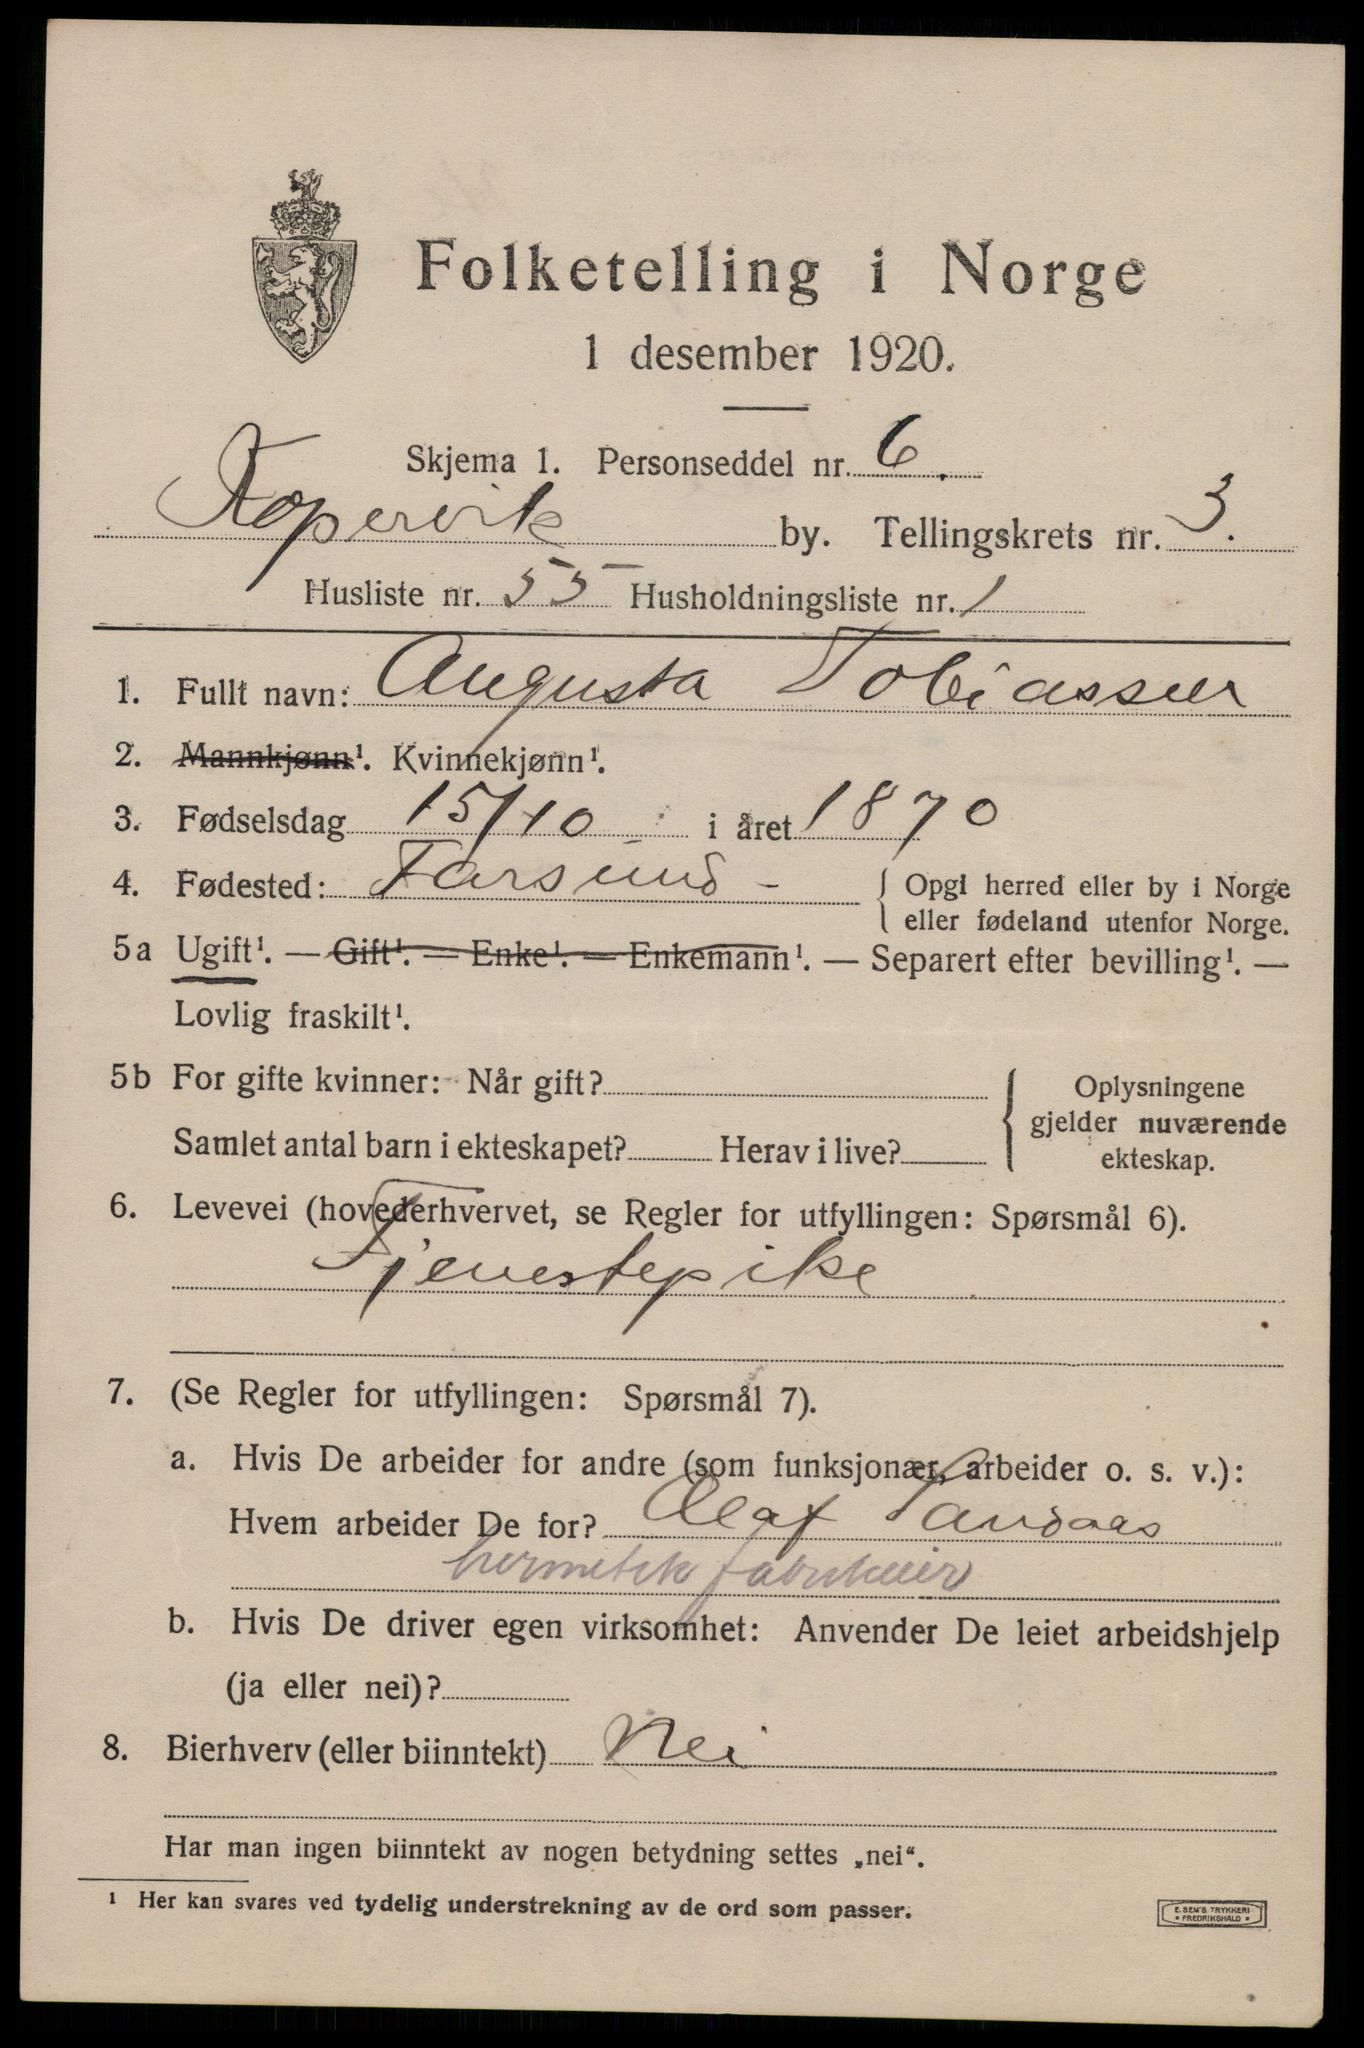 Folketelling i Norge
1 desember 1920.
Skjema 1. Personseddel nr. 6.
Kopervik by. Tellingskrets nr. 3.
Husliste nr. 55 Husholdningsliste nr. 1
1. Fullt navn: Augusta Tobiassen
2. Mannkjønn¹. Kvinnekjønn¹.
3. Fødselsdag 15/10 i året 1870
4. Fødested: Farsund - { Opgi herred eller by i Norge
eller fødeland utenfor Norge.
5a Ugift¹. — Gift¹. — Enke¹. — Enkemann¹. — Separert efter bevilling¹. —
Lovlig fraskilt¹.
5b For gifte kvinner: Når gift? Oplysningene
gjelder nuværende
Samlet antal barn i ekteskapet? Herav i live? ekteskap.
6. Levevei (hovederhvervet, se Regler for utfyllingen: Spørsmål 6).
Tjenestepike
7. (Se Regler for utfyllingen: Spørsmål 7).
a. Hvis De arbeider for andre (som funksjonær, arbeider o. s. v.):
Hvem arbeider De for? Olaf
hermetik fabrikeier
b. Hvis De driver egen virksomhet: Anvender De leiet arbeidshjelp
(ja eller nei)?
8. Bierhverv (eller biinntekt) Nei
Har man ingen biinntekt av nogen betydning settes „nei“.
¹ Her kan svares ved tydelig understrekning av de ord som passer.
E. SEM'S TRYKKERI
• FREDRIKSHALD •